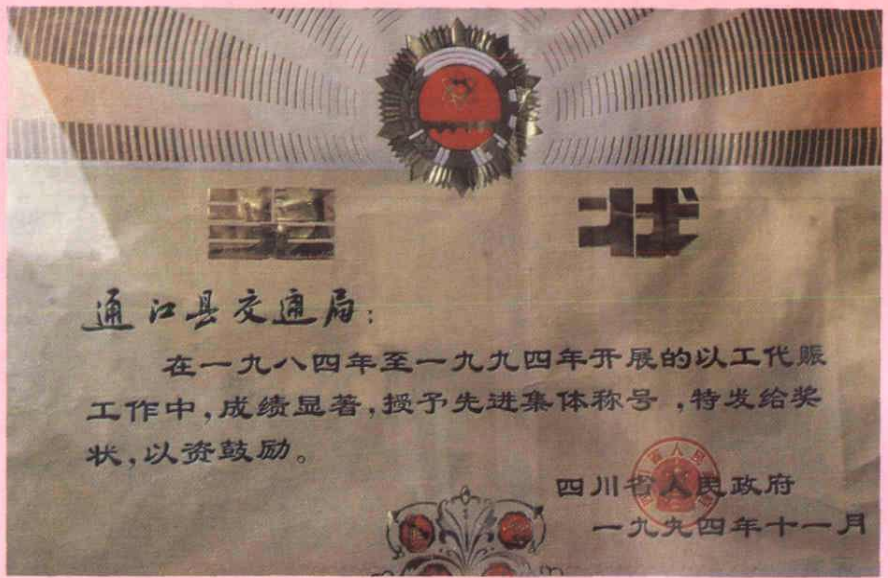 奖状
通江县交通局：
在一九八四年至一九九四年开展的以工代赈
工作中，成绩显著，授予先进集体称号，特发给奖
状，以资鼓励。
四川省人民政府
一九九四年十一月